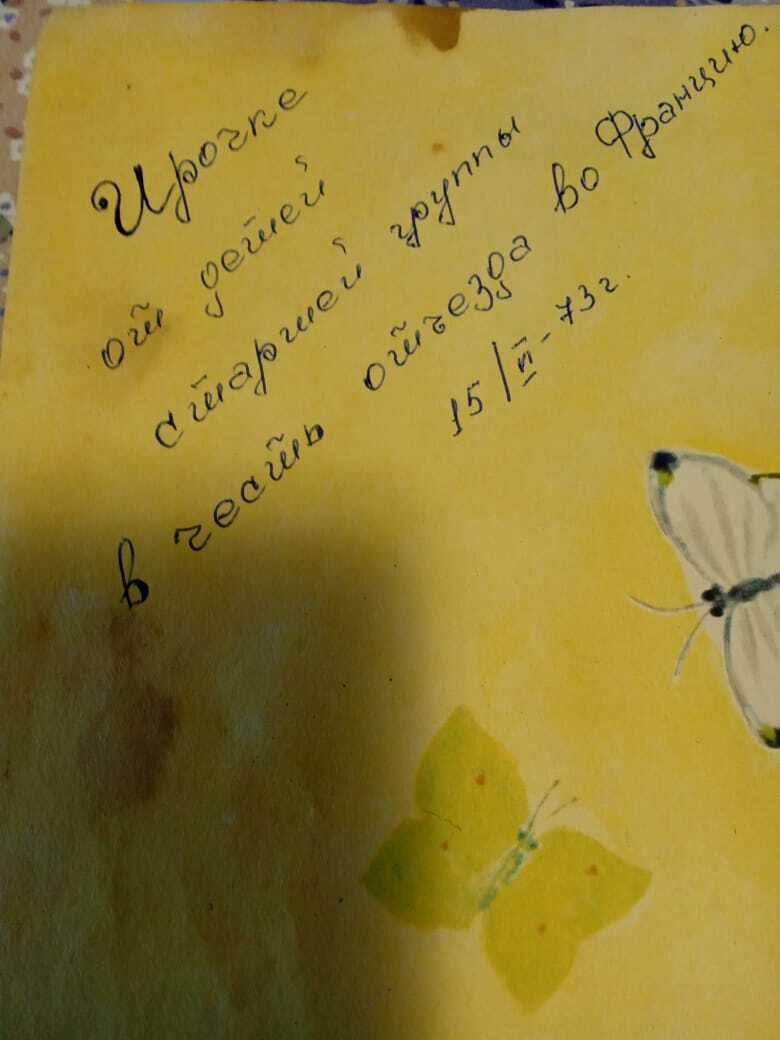 Ирочке
от детей
старшей группы
в честь отъезда во Францию.
15/VI-73г.